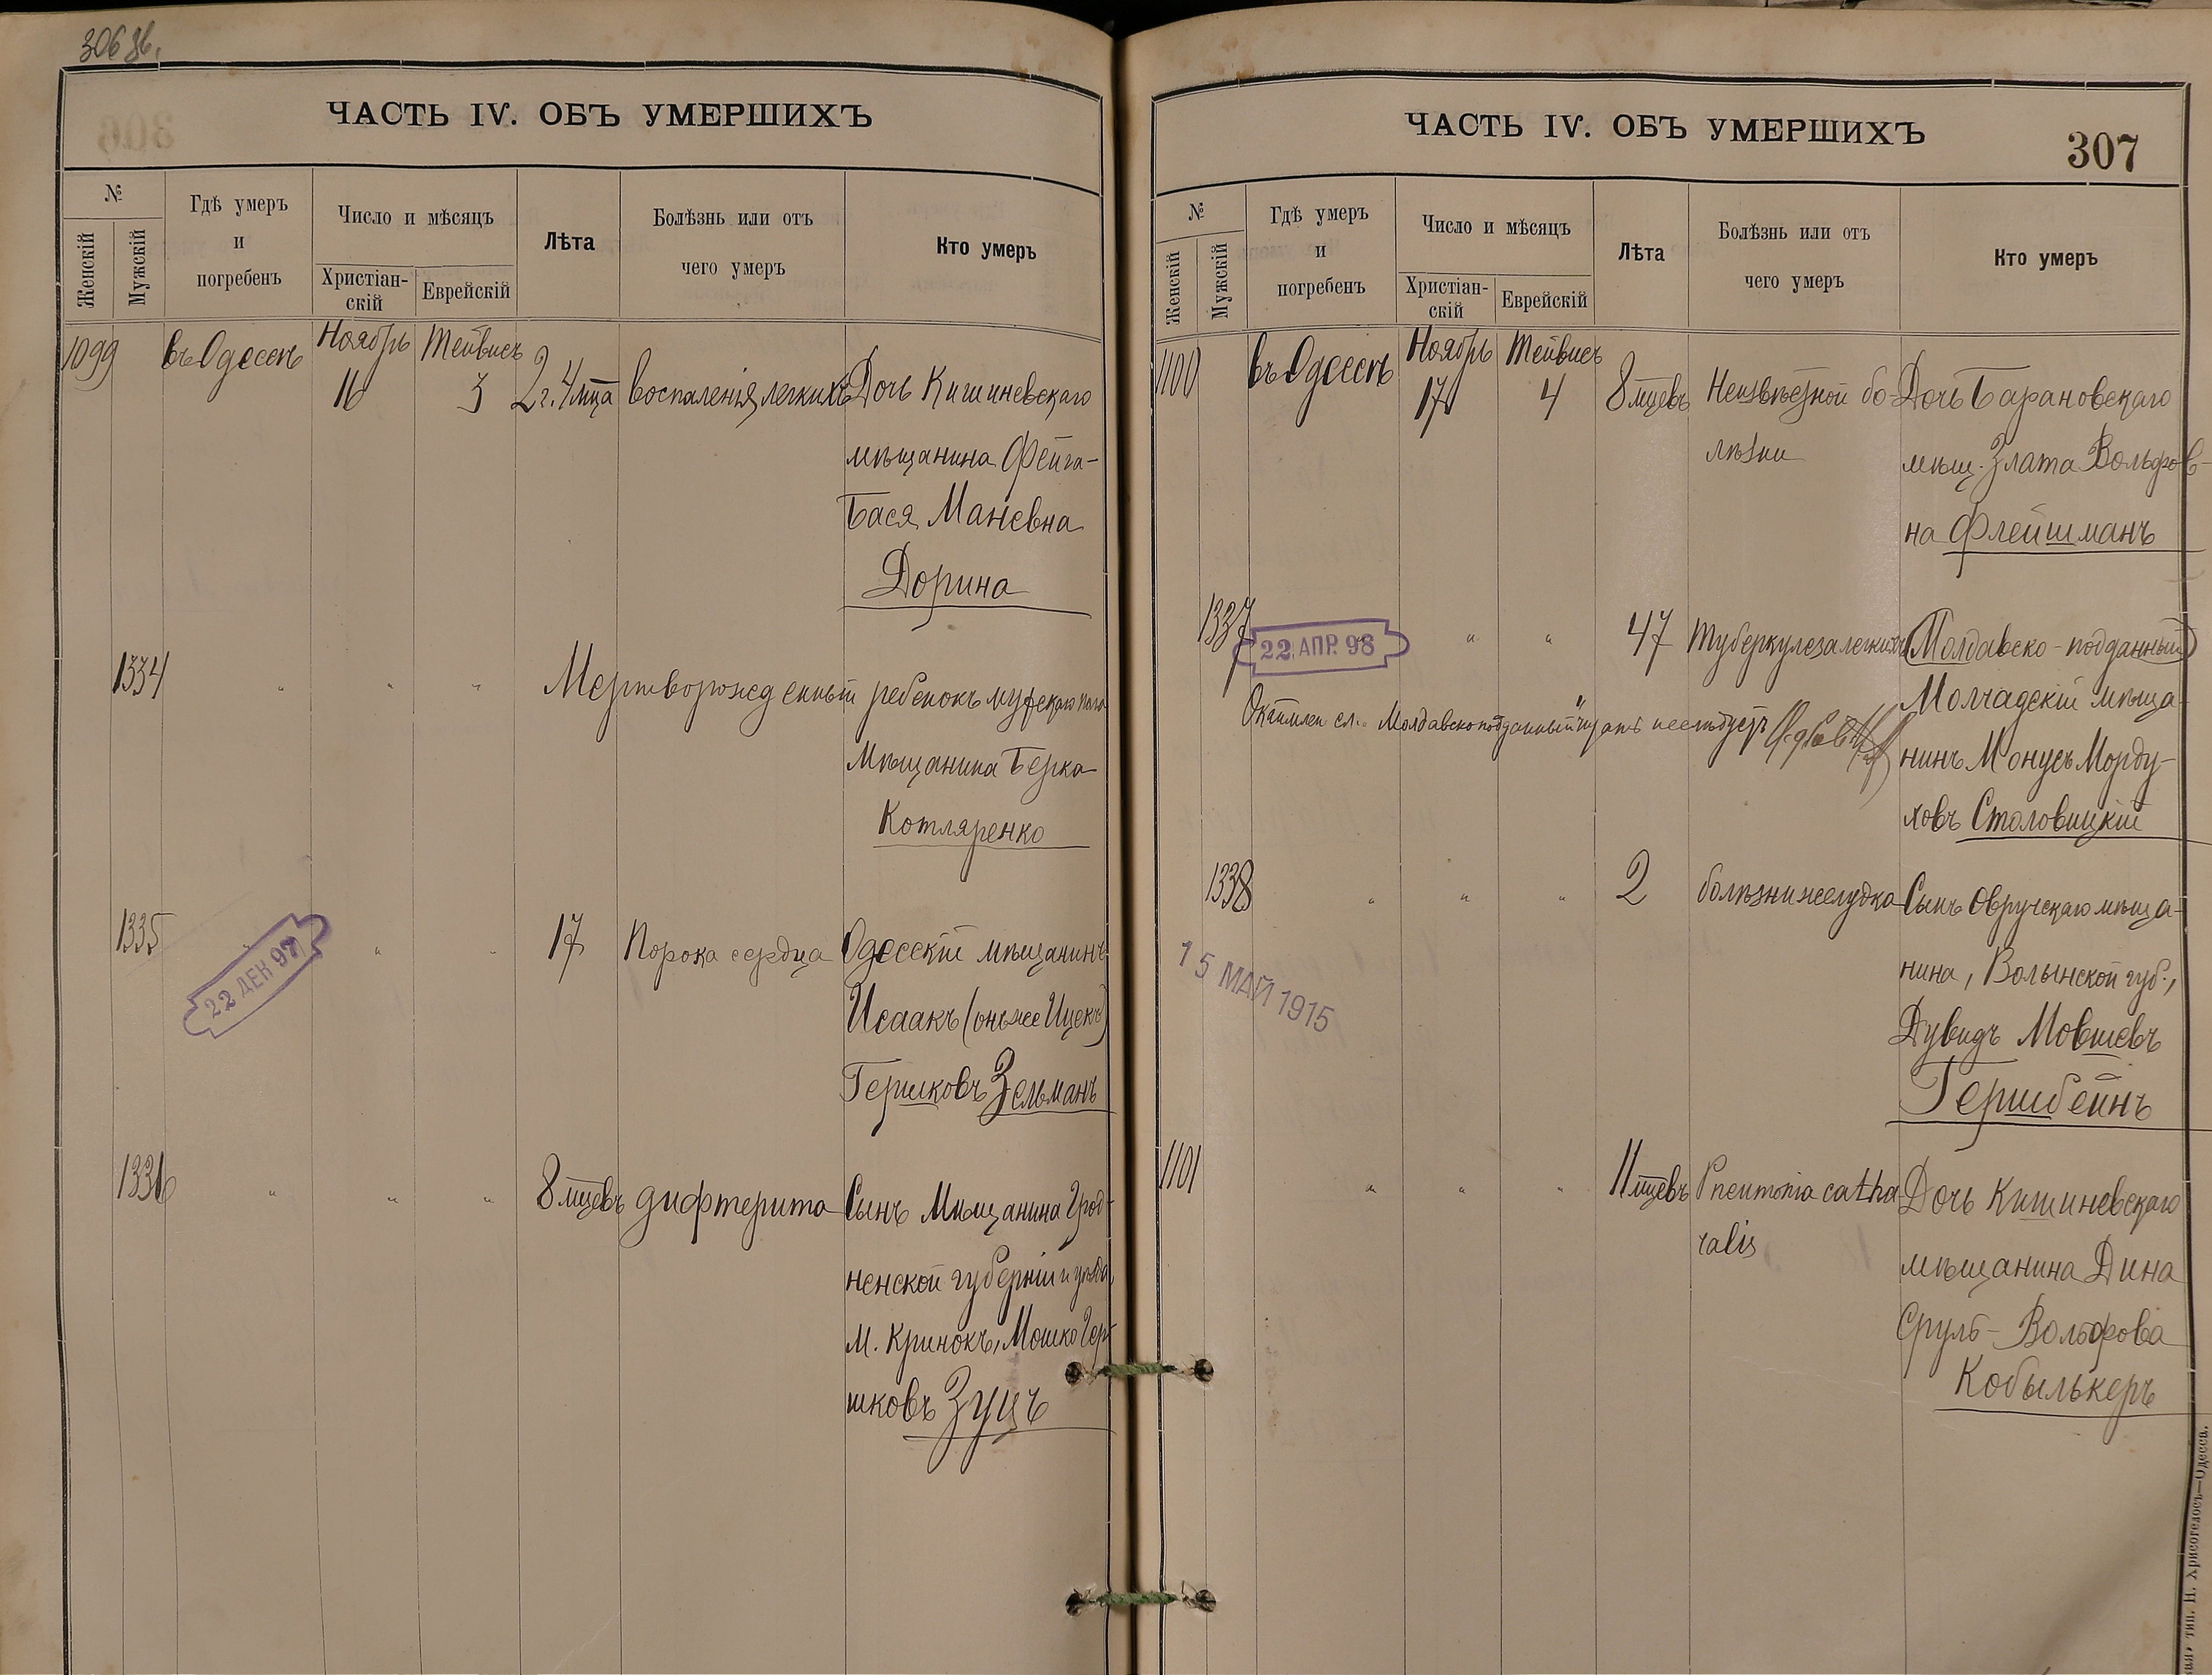 306 зв.
306
ЧАСТЬ IV. ОБЪ УМЕРШИХЪ
№
Женскій
Мужскій
Гдѣ умеръ
и
погребенъ
Число и мѣсяцъ
Христіан-
скій
Еврейскій
Лѣта
Болѣзнь или отъ
чего умеръ
Кто умеръ
1099 въ Одессѣ Ноябрь Тейвисъ
16 3 2 г. 4 мца воспаленія легкихъ Дочь Кишиневскаго
мѣщанина Фейга-
Бася Маневна
Дорина
1334 " " " Мертворожденный ребенокъ мужскаго пола
Мѣщанина Берка
Котляренко
1335 " " " 17 Порока сердца Одесскій мѣщанинъ
Исаакъ (онъ же Ицекъ)
Гершковъ Зельманъ
22 ДЕК 97
1336 " " " 8 мцевъ дифтерита Сынъ Мѣщанина Грод-
ненской губерніи и уѣзда,
м. Кринокъ, Мошко Гер-
шковъ Зуцъ
ЧАСТЬ IV. ОБЪ УМЕРШИХЪ
307
№
Женскій
Мужскій
Гдѣ умеръ
и
погребенъ
Число и мѣсяцъ
Христіан-
скій
Еврейскій
Лѣта
Болѣзнь или отъ
чего умеръ
Кто умеръ
1100 въ Одессѣ Ноябрь Тейвисъ
17 4 8 мцевъ Неизвѣстной бо- Дочь Барановскаго
лѣзни мѣщ. Злата Вольфов-
на Флейшманъ
1337 " " " 47 Туберкулеза легкихъ (Молдавско-подданный)
22 АПР. 98
Молчадскій мѣща-
сл. "Молдавскоподданный" читать не слѣдуетъ
нинъ Монусъ Морду-
ховъ Столовицкій
1338 " " " 2 болѣзни желудка Сынъ Овручскаго мѣща-
нина, Волынской губ.,
Дувидъ Мовшевъ
Гершбейнъ
15 МАЙ 1915
1101 " " " 11 мцевъ Pneumonia catha- Дочь Кишиневскаго
ralis мѣщанина Дина
Сруль-Вольфова
Кобылькеръ
тип. Н. Хрисогелосъ—Одесса.